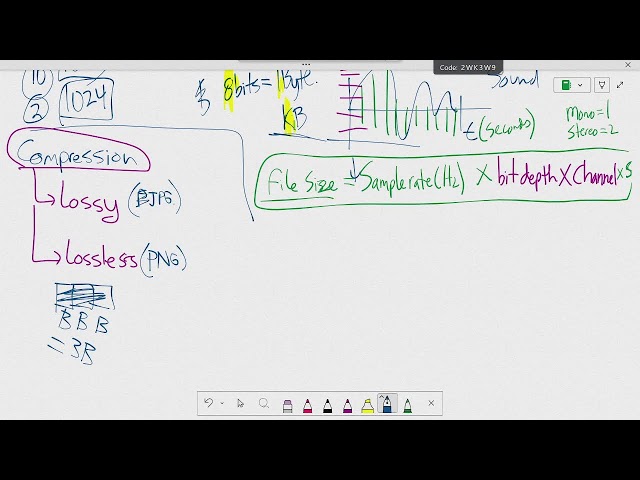 Code: 2WK3W9
10
2
1024
8bits = 1Byte.
KB
Sound
t(seconds)
Mono=1
Stereo=2
Compression
Lossy (JPG)
Lossless (PNG)
B B B
= 3B
File Size = Samplerate(Hz) X bit depth X Channel x S